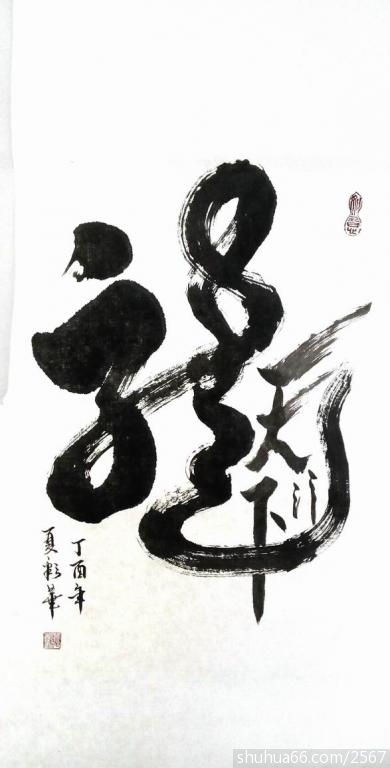 龍
行
天下
丁酉年
夏彩華
shuhua66.com/2567